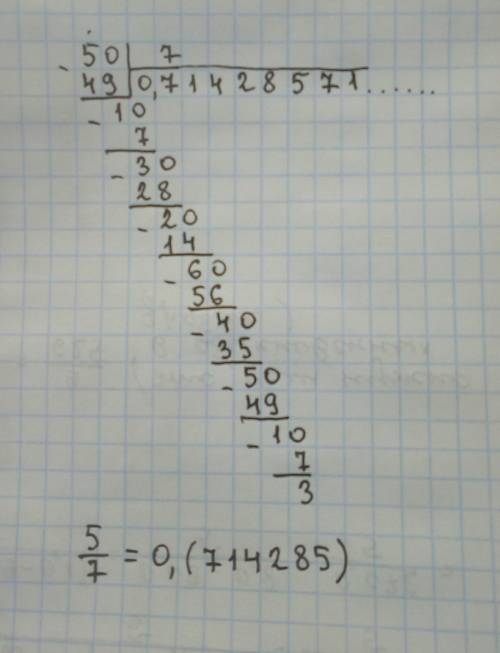 50 7
49 0,71428571......
- 10
7
- 30
28
- 20
14
- 60
56
- 40
35
- 50
49
- 10
7
3
5/7 = 0,(714285)